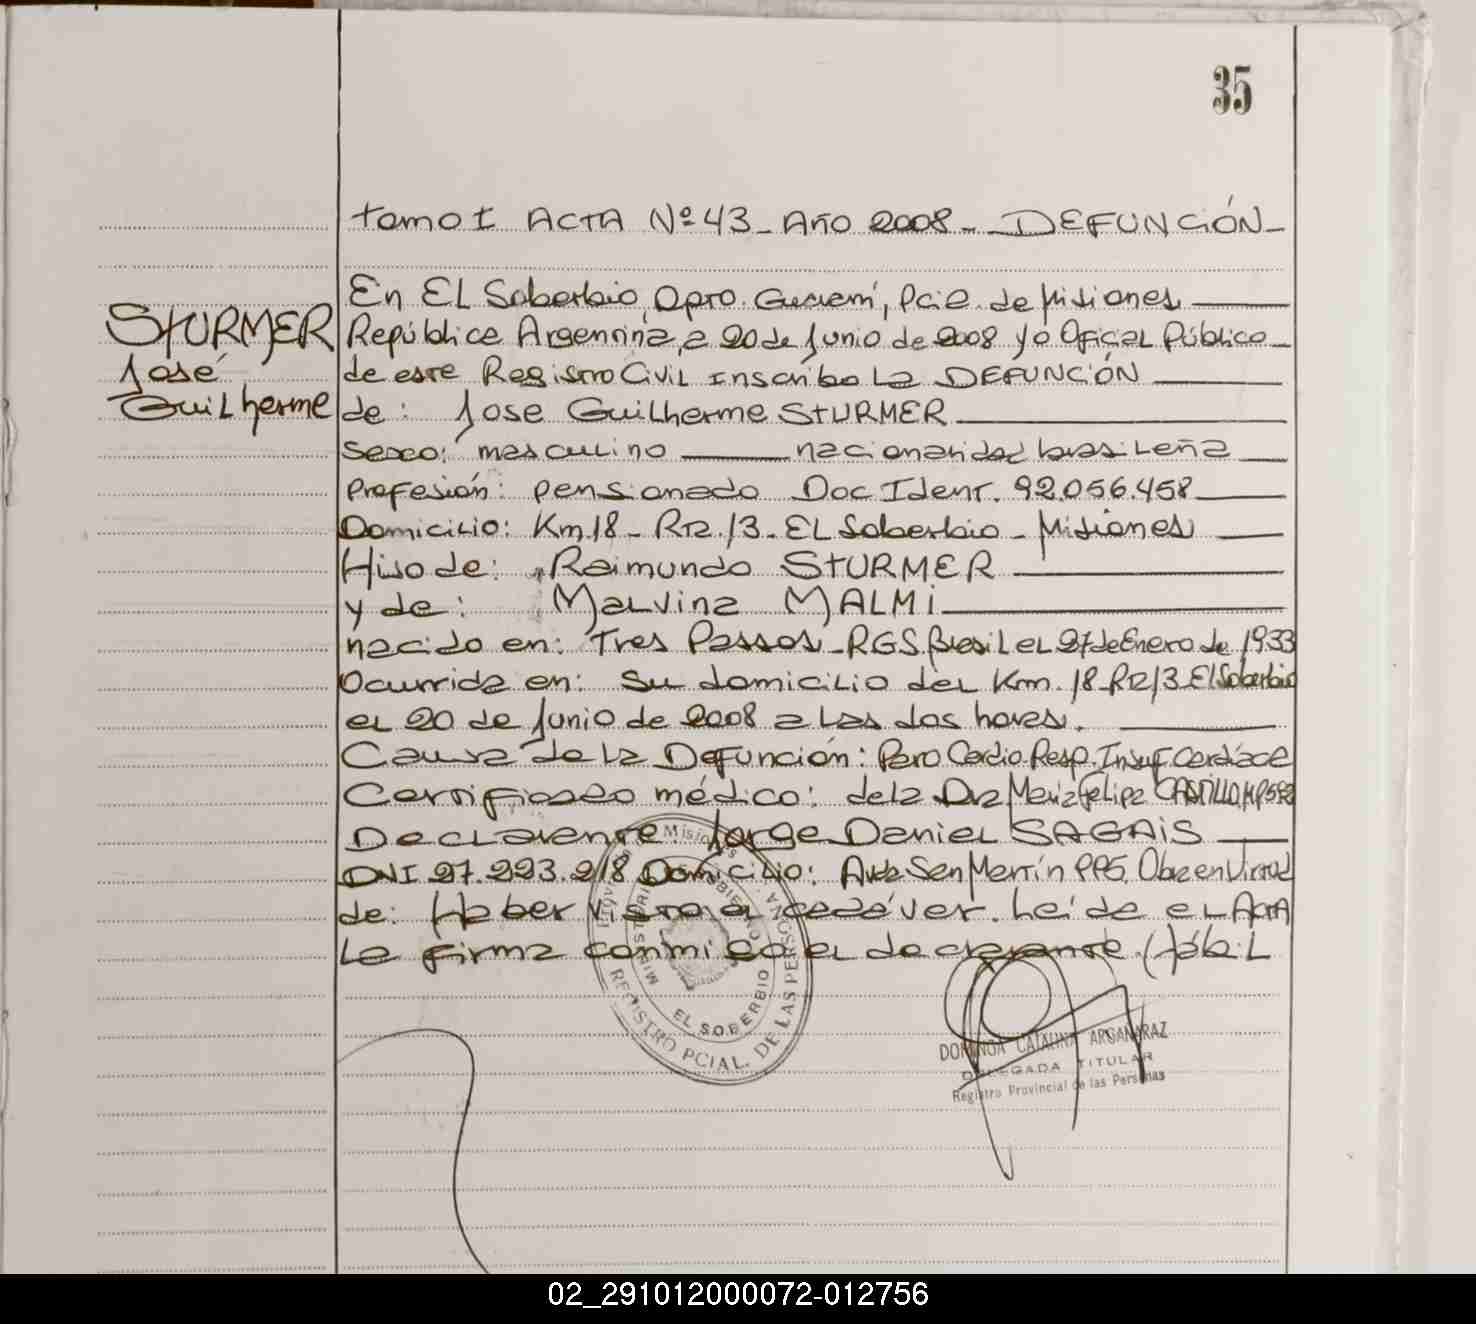 35
Tomo I ACTA Nº 43 - Año 2008 - DEFUNCIÓN -
STURMER
José
Guilherme
En EL Soberbio, Dpto. Guaraní, Pcia. de Misiones
República Argentina, a 20 de Junio de 2008 yo Oficial Público
de este Registro Civil inscribo La DEFUNCIÓN
de: Jose Guilherme STURMER
Sexo: masculino nacionalidad brasileña
Profesión: pensionado Doc Ident. 92.056.458
Domicilio: Km 18 - RP. 13 - EL Soberbio - Misiones
Hijo de: Raimundo STURMER
y de: Malvina MALMI
nacido en: Tres Passos - RGS. Brasil el 27 de Enero de 1933
Ocurrida en: Su domicilio del Km. 18 - RP 13 El Soberbio
el 20 de Junio de 2008 a las dos horas.
Causa de la Defunción: Paro Cardio Resp. Insuf. Cardíaca
Certificado médico: de la Dra Maria Felipa CASTILLO, MP
Declarante: Jorge Daniel SAGAIS
DNI 27.223.218 Domicilio: Avda San Martín Obra en Virtud
de: Haber visto el cadáver. Leída el Acta
La firma conmigo el declarante.
Provincia de Misiones
MINISTERIO GOBIERNO
EL SOBERBIO
REGISTRO PCIAL. DE LAS PERSONAS
DOMINGA CATALINA ARGAÑARAZ
DELEGADA TITULAR
Registro Provincial de las Personas
02_291012000072-012756